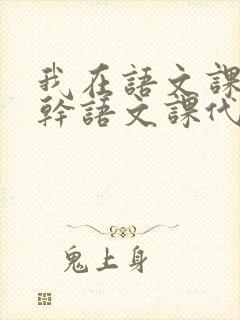 我在語文課
幹語文課代
鬼上身